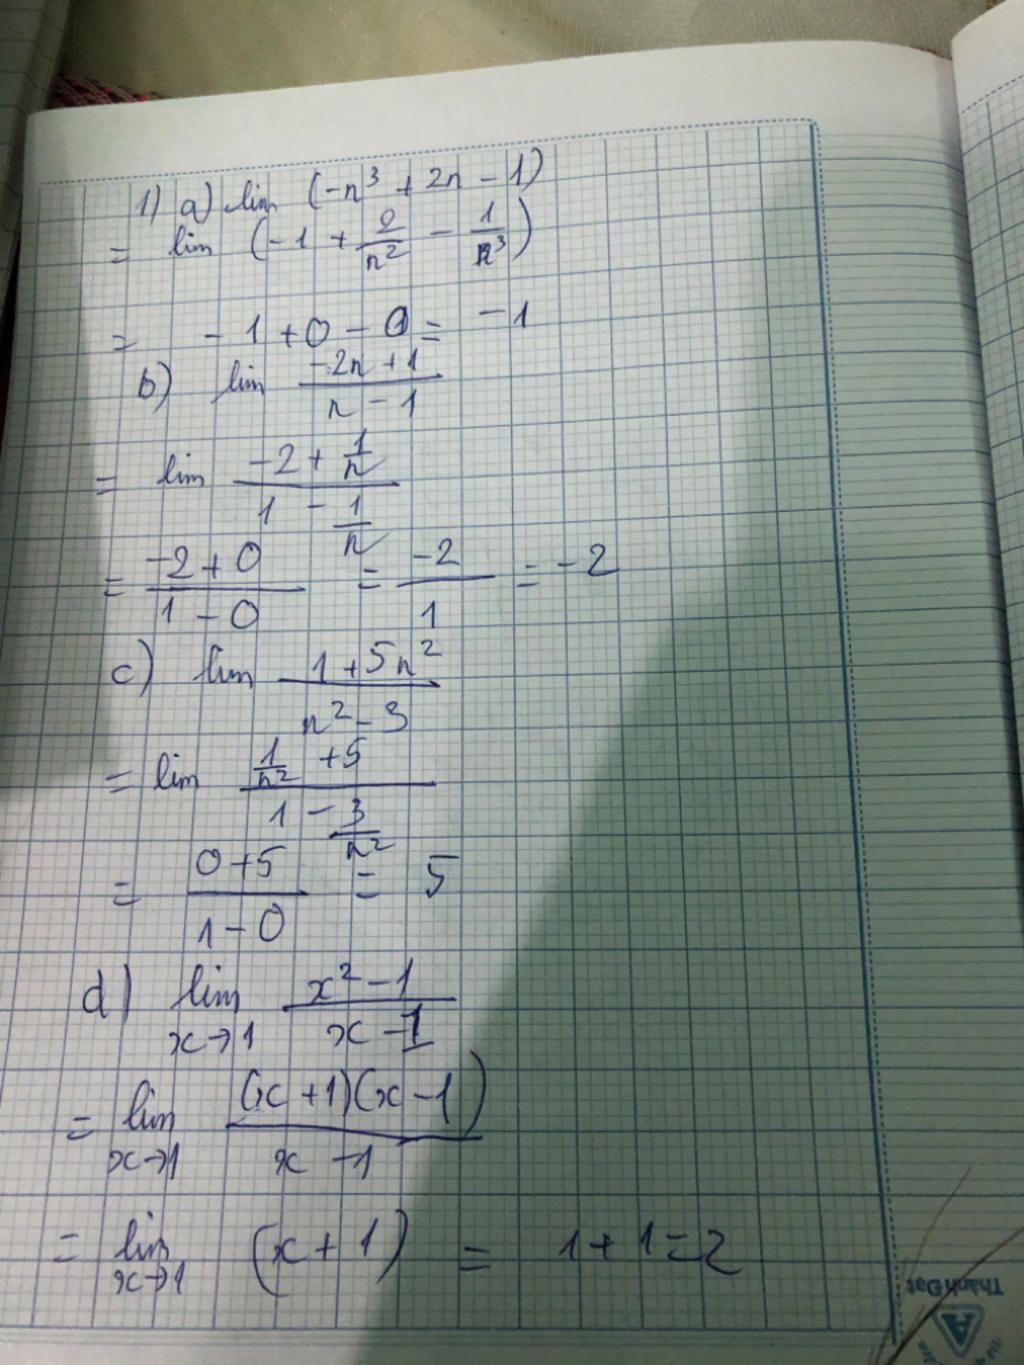 1) a) lim (-n³ + 2n - 1)
= lim (-1 + 2/n² - 1/n³)
= -1 + 0 - 0 = -1
b) lim (-2n + 1)/(n - 1)
= lim (-2 + 1/n)/(1 - 1/n)
= (-2 + 0)/(1 - 0) = -2/1 = -2
c) lim (1 + 5n²)/(n² - 3)
= lim (1/n² + 5)/(1 - 3/n²)
= (0 + 5)/(1 - 0) = 5
d) lim x→1 (x² - 1)/(x - 1)
= lim x→1 (x + 1)(x - 1)/(x - 1)
= lim x→1 (x + 1) = 1 + 1 = 2
Thành Đạt